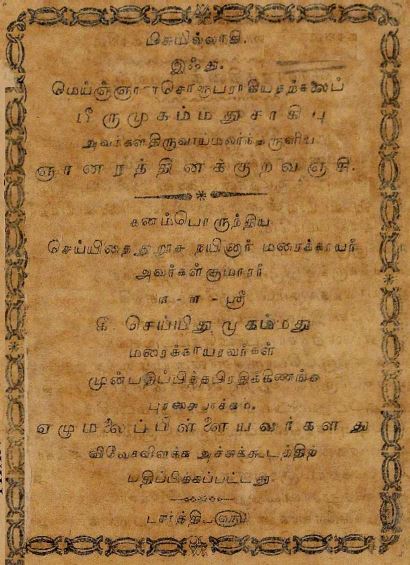 பிசுமில்லாகி.
இஃது.
மெய்ஞ்ஞானசொரூபராகியதற்கலைப்
பீருமுகம்மதுசாகிபு
அவர்கள்திருவாய்மலர்ந்தருளிய
ஞானரத்தினக்குறவஞ்சி.
கனம்பொருந்திய
செய்யிதை துரூசு நயினார் மரைக்காயர்
அவர்கள்குமாரர்
ஸ்ரீ
கீ. செய்யிது முகம்மது
மரைக்காயரவர்கள்
முன்பதிப்பித்தபிரதிக்கிணங்க
புரசைபாக்கம்.
ஏழுமலைப்பிள்ளையவர்களது
விவேகவிளக்க அச்சுக்கூடத்தில்
பதிப்பிக்கப்பட்டது.